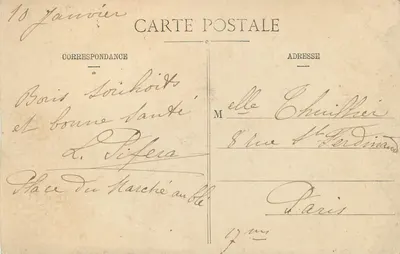 10 Janvier
CARTE POSTALE
CORRESPONDANCE
Bons souhaits
et bonne santé
L.
Place du Marché au blé
ADRESSE
Melle Thuillier
8 rue St Ferdinand
Paris
17me